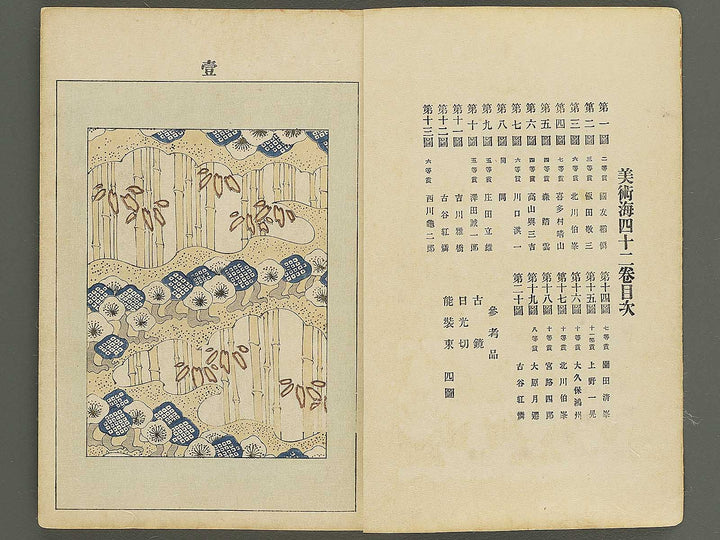 美術海四十二卷目次
第一圖 二等賞
第二圖 三等賞 飯田敬三
第三圖 六等賞 北川伯峯
第四圖 七等賞 喜多村靖山
第五圖 四等賞
第六圖 四等賞 高山興三吉
第七圖 六等賞 川口淇一
第八圖 同 同
第九圖 五等賞 庄田立雄
第十圖 五等賞 澤田誠一郎
第十一圖 吉川雅橋
第十二圖 古谷紅憐
第十三圖 六等賞 西川龜二郎
第十四圖 七等賞 園田清峯
第十五圖 十一等賞 上野一晃
第十六圖 十等賞 大久保鴻州
第十七圖 十等賞 北川伯峯
第十八圖 十等賞 宮路四郎
第十九圖 八等賞 大原月
第二十圖 古谷紅憐
參考品
古鏡
日光切
能裝束 四圖
壹